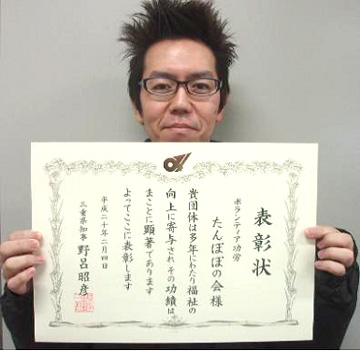 表彰状
ボランティア功労
たんぽぽの会様
貴団体は多年にわたり福祉の
向上に寄与されその功績は
まことに顕著であります
よってここに表彰します
平成二十年二月四日
三重県知事 野呂昭彦